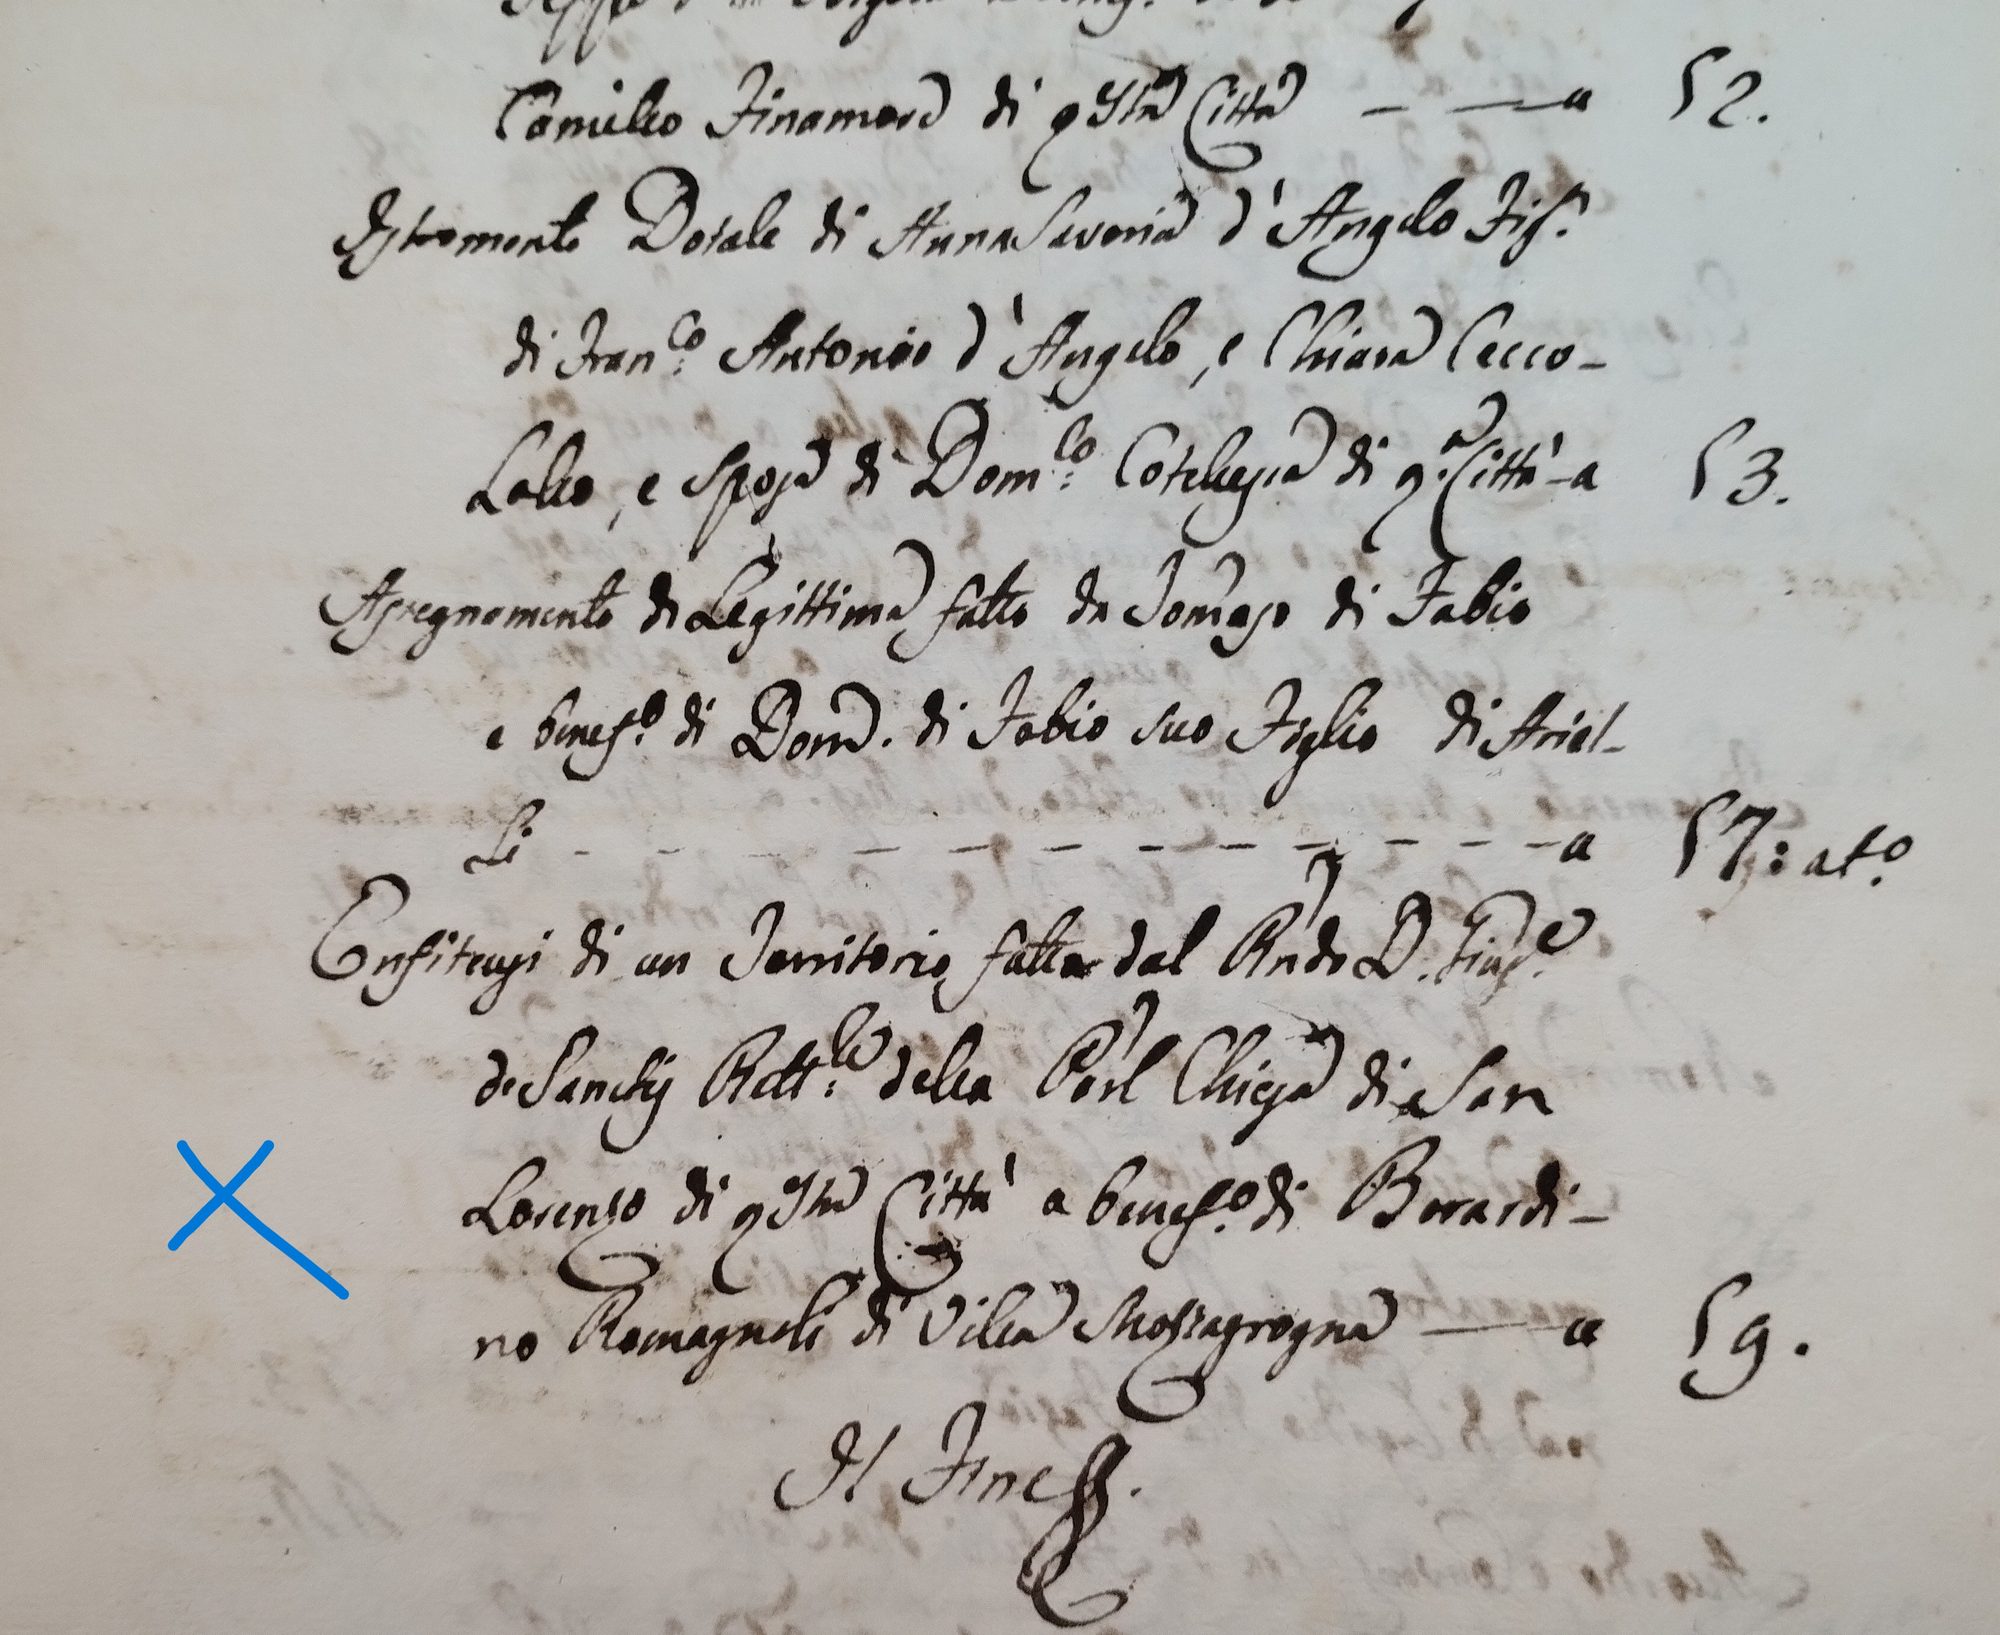 Camillo Finamore di qsta Città — — a 52.
Istromento Dotale di Anna Saveria d'Angelo Fig.
di Fran.co Antonio d'Angelo, e Chiara Cecco-
Lallo, e Sposa di Dom.co Cotellessa di q.a Città - a 53.
Assegnamento di Legittima fatto da Tomaso di Fabio
e benef.o di Dom. di Fabio suo Figlio di Ariel-
Li - - - - - - - - - - - a 57: at.o
Enfiteusi di un Territorio fatta dal Rndo D.
de Sanctis Rett.le della Parl Chiesa di San
Lorenzo di qsta Città a benef.o di Berardi-
no Romagnoli di Villa Mozzagrogna — a 59.
Il Fine.